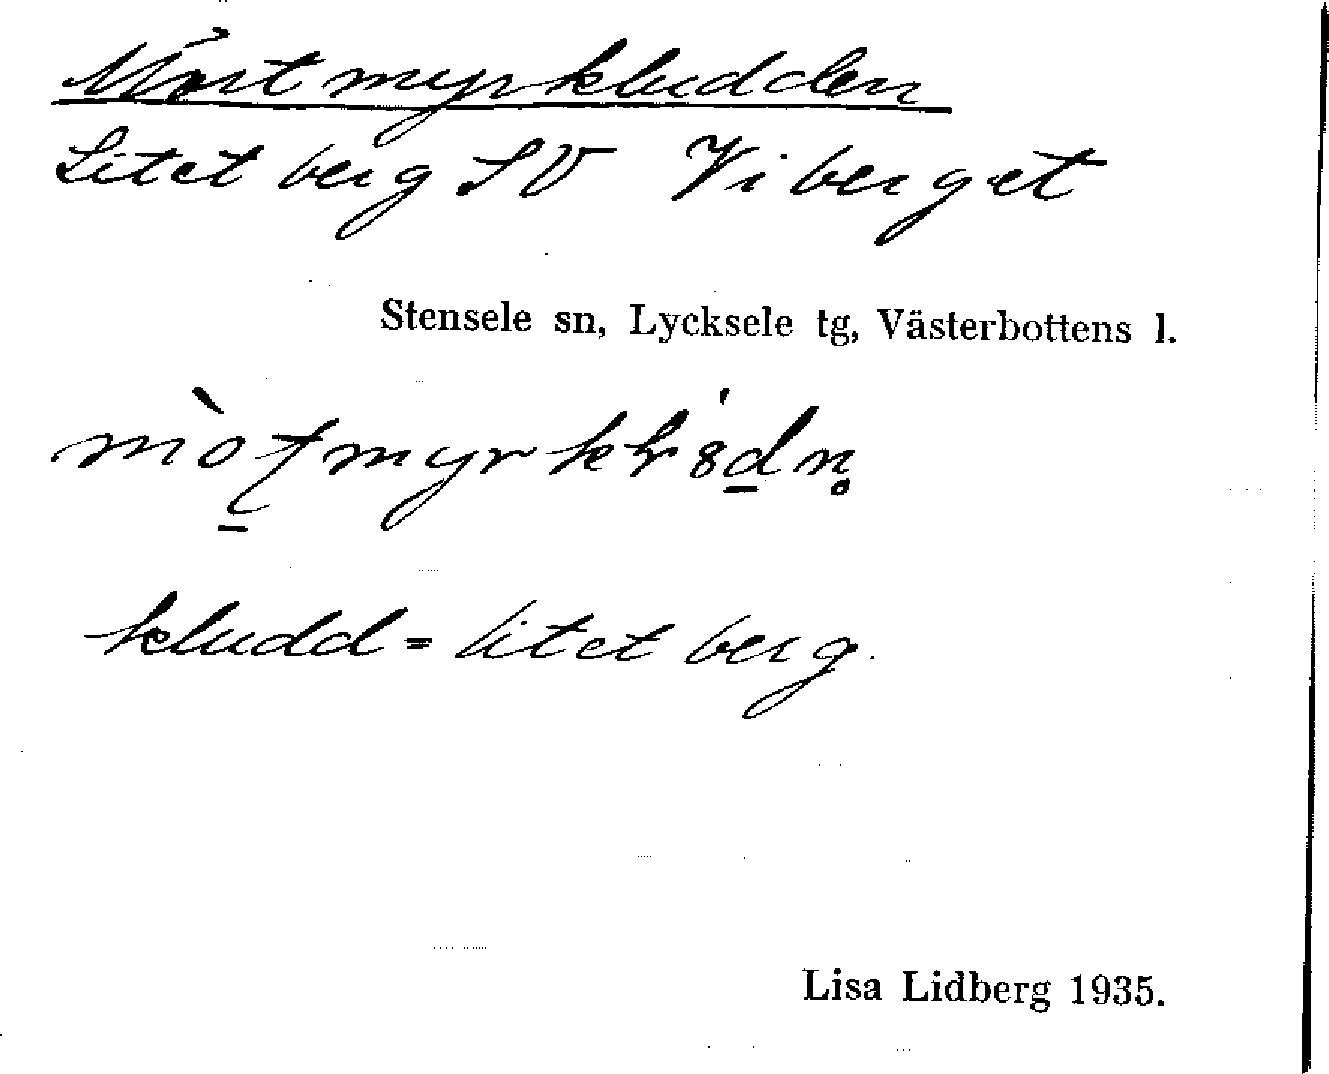 Mörtmyrkludden
Litet berg SV Viberget
Stensele sn, Lycksele tg, Västerbottens l.
kludd = litet berg.
Lisa Lidberg 1935.